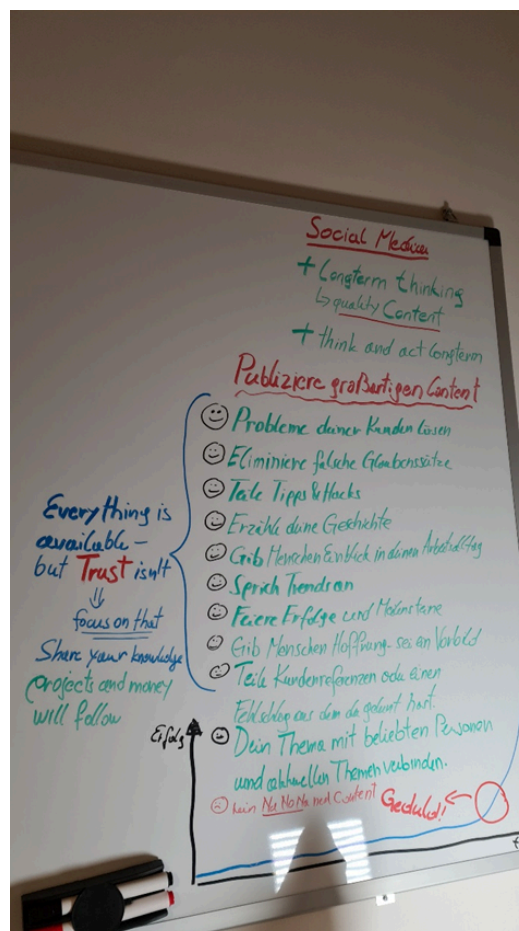 Social Medien
+ Longterm thinking
↳ quality Content
+ think and act longterm
Publiziere großartigen Content
Probleme deiner Kunden lösen
Eliminiere falsche Glaubenssätze
Teile Tipps & Hacks
Erzähle deine Geschichte
Gib Menschen Einblick in deinen Arbeitsalltag
Sprich Trends an
Feiere Erfolge und Meilensteine
Gib Menschen Hoffnung - sei ein Vorbild
Teile Kundenreferenzen oder einen
Fehlschlag aus dem du gelernt hast.
Dein Thema mit beliebten Personen
und aktuellen Themen verbinden.
kein Content
Geduld!
Everything is
available –
but Trust isn't
focus on that
Share your knowledge
projects and money
will follow
Erfolg